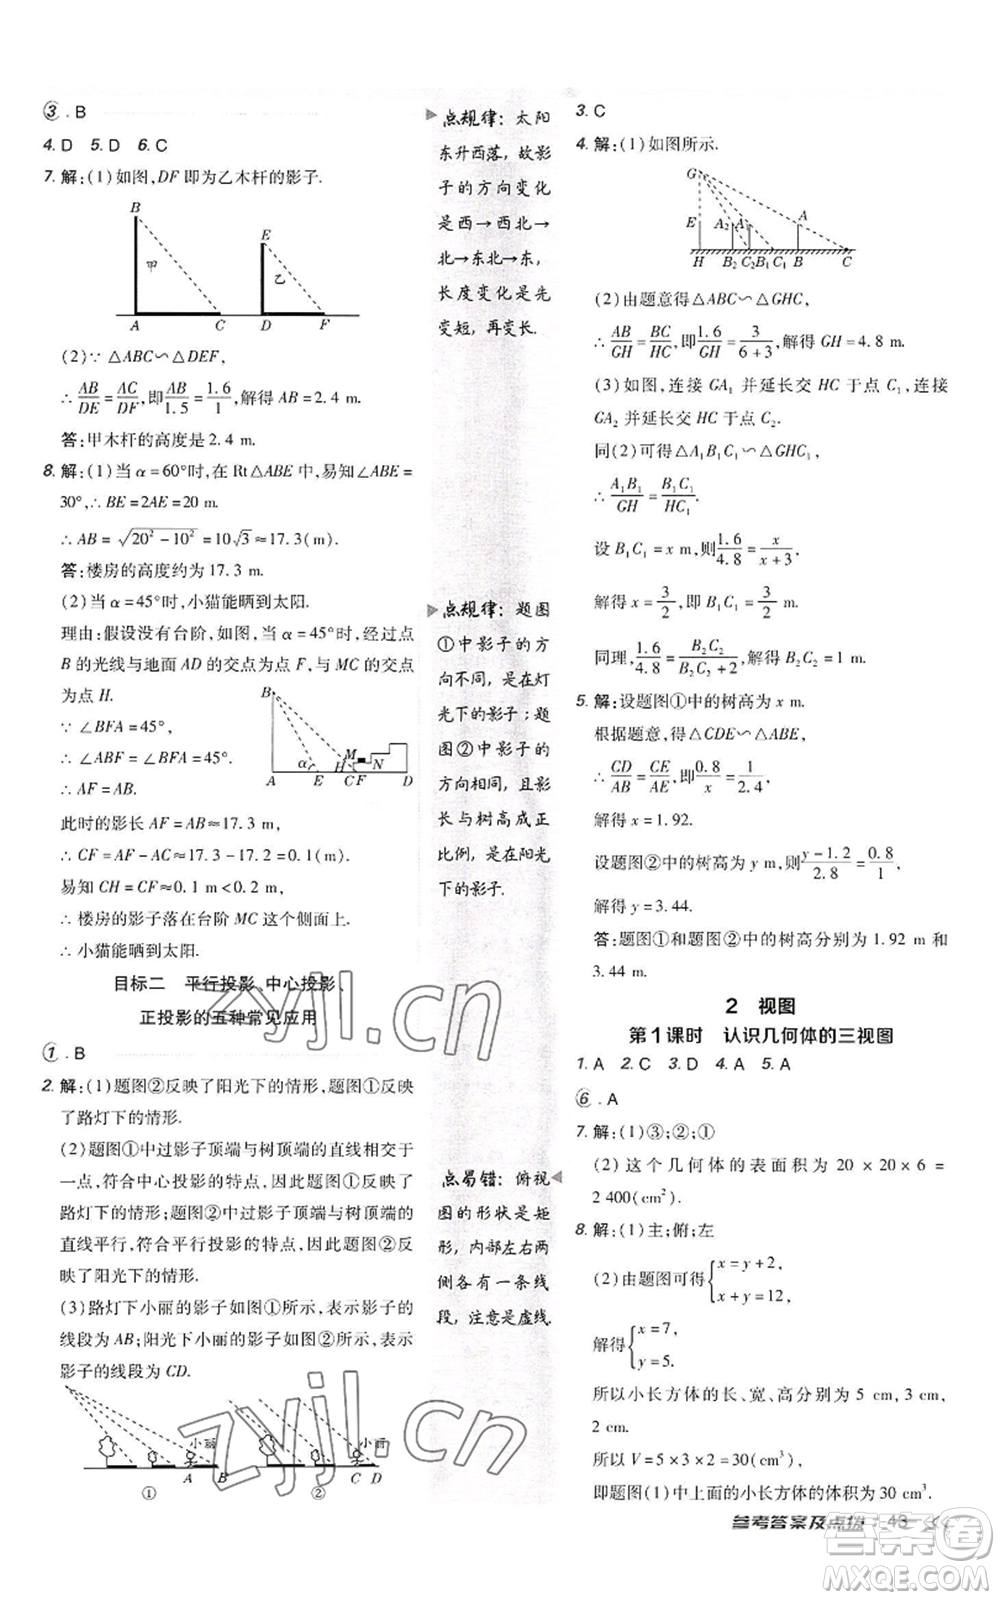 ③. B
4. D 5. D 6. C
7. 解:(1)如图,DF 即为乙木杆的影子.
B
E
甲
乙
A C D F
(2)∵ △ABC∽△DEF,
∴ AB/DE = AC/DF, 即 AB/1.5 = 1.6/1, 解得 AB=2.4 m.
答:甲木杆的高度是 2.4 m.
8. 解:(1)当 α=60°时,在 Rt△ABE 中,易知∠ABE=
30°,∴ BE=2AE=20 m.
∴ AB=√(20²-10²)=10√3≈17.3(m).
答:楼房的高度约为 17.3 m.
(2)当 α=45°时,小猫能晒到太阳.
理由:假设没有台阶,如图,当 α=45°时,经过点
B 的光线与地面 AD 的交点为点 F,与 MC 的交点
为点 H.
∵ ∠BFA=45°,
∴ ∠ABF=∠BFA=45°,
∴ AF=AB.
B
M
N
α H
A E C F D
此时的影长 AF=AB≈17.3 m,
∴ CF=AF-AC≈17.3-17.2=0.1(m).
易知 CH=CF≈0.1 m<0.2 m,
∴ 楼房的影子落在台阶 MC 这个侧面上.
∴ 小猫能晒到太阳.
目标二 平行投影、中心投影、
正投影的五种常见应用
①. B
2. 解:(1)题图②反映了阳光下的情形,题图①反映
了路灯下的情形.
(2)题图①中过影子顶端与树顶端的直线相交于
一点,符合中心投影的特点,因此题图①反映了
路灯下的情形;题图②中过影子顶端与树顶端的
直线平行,符合平行投影的特点,因此题图②反
映了阳光下的情形.
(3)路灯下小丽的影子如图①所示,表示影子的
线段为 AB;阳光下小丽的影子如图②所示,表示
影子的线段为 CD.
小丽
小丽
A B
C D
①
②
点规律:太阳
东升西落,故影
子的方向变化
是西→西北→
北→东北→东,
长度变化是先
变短,再变长.
点规律:题图
①中影子的方
向不同,是在灯
光下的影子;题
图②中影子的
方向相同,且影
长与树高成正
比例,是在阳光
下的影子.
点易错:俯视
图的形状是矩
形,内部左右两
侧各有一条线
段,注意是虚线.
3. C
4. 解:(1)如图所示.
G
E A₂ A₁ A
H B₂ C₂ B₁ C₁ B C
(2)由题意得△ABC∽△GHC,
∴ AB/GH = BC/HC, 即 1.6/GH = 3/(6+3), 解得 GH=4.8 m.
(3)如图,连接 GA₁ 并延长交 HC 于点 C₁,连接
GA₂ 并延长交 HC 于点 C₂.
同(2)可得△A₁B₁C₁∽△GHC₁,
∴ A₁B₁/GH = B₁C₁/HC₁.
设 B₁C₁=x m,则 1.6/4.8 = x/(x+3),
解得 x=3/2, 即 B₁C₁=3/2 m.
同理, 1.6/4.8 = B₂C₂/(B₂C₂+2), 解得 B₂C₂=1 m.
5. 解:设题图①中的树高为 x m.
根据题意,得△CDE∽△ABE,
∴ CD/AB = CE/AE, 即 0.8/x = 1/2.4,
解得 x=1.92.
设题图②中的树高为 y m,则 (y-1.2)/2.8 = 0.8/1,
解得 y=3.44.
答:题图①和题图②中的树高分别为 1.92 m 和
3.44 m.
2 视图
第 1 课时 认识几何体的三视图
1. A 2. C 3. D 4. A 5. A
⑥. A
7. 解:(1)③;②;①
(2)这个几何体的表面积为 20×20×6=
2 400(cm²).
8. 解:(1)主;俯;左
(2)由题图可得 { x=y+2,
x+y=12,
解得 { x=7,
y=5.
所以小长方体的长、宽、高分别为 5 cm,3 cm,
2 cm.
所以 V=5×3×2=30(cm³),
即题图(1)中上面的小长方体的体积为 30 cm³.
参考答案及点拨 43
zyjl.cn
zyjl.cn
答案圈
MXQE.COM